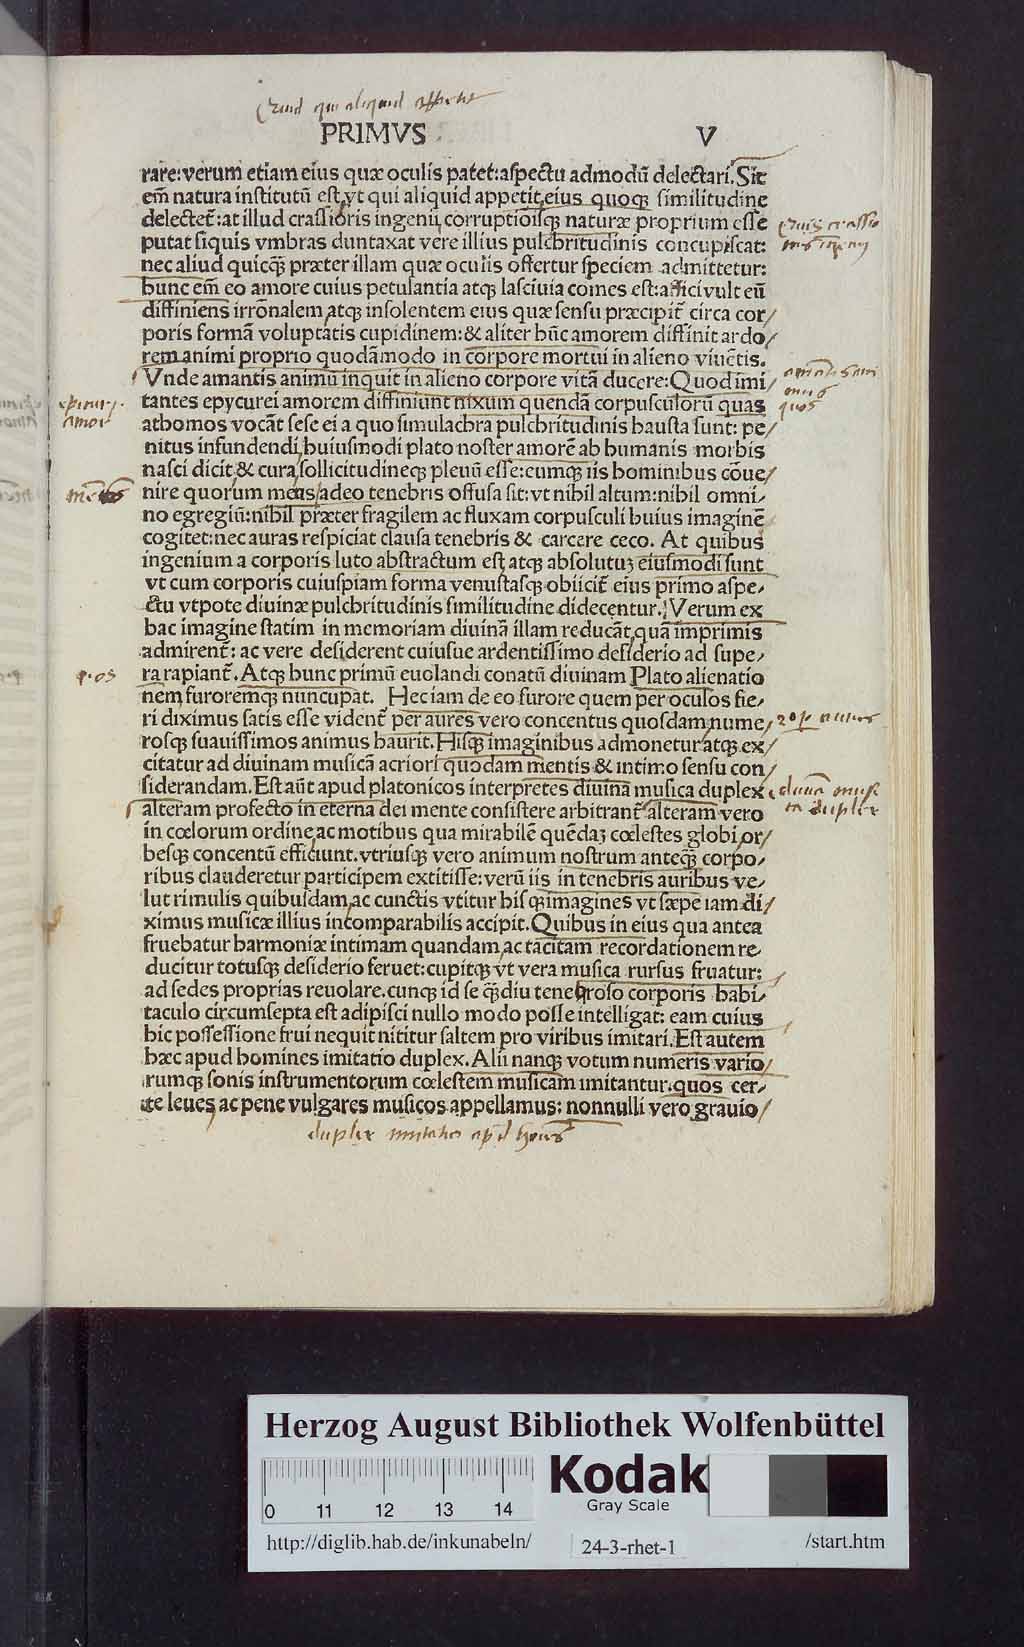 PRIMVS V
rare: verum etiam eius quæ oculis patet: aspectu admodū delectari. Sit
em̄ natura institutū est, vt qui aliquid appetit, eius quoqȝ similitudine
delectet̄: at illud crassioris ingenii, corruptioīsqȝ naturæ proprium esse
putat siquis vmbras duntaxat vere illius pulchritudinis concupiscat:
nec aliud quicqȝ̄ præter illam quæ oculis offertur speciem admittetur:
hunc em̄ eo amore cuius petulantia atqȝ lasciuia comes est: affici vult eū
diffiniens irrōnalem, atqȝ insolentem eius quæ sensu præcipit̄ circa cor/
poris formā voluptatis cupidinem: & aliter hūc amorem diffinit ardo/
rem animi proprio quodāmodo in corpore mortui in alieno viuētis.
Vnde amantis animū inquit in alieno corpore vitā ducere: Quod imi/
tantes epycurei amorem diffiniunt nixum quendā corpusculorū quas
athomos vocāt sese ei a quo simulachra pulchritudinis hausta sunt: pe/
nitus infundendi, huiusmodi plato noster amorē ab humanis morbis
nasci dicit, & cura, sollicitudineqȝ plenū esse: eumqȝ iis hominibus cōue/
nire quorum mens, adeo tenebris offusa sit: vt nihil altum: nihil omni/
no egregiū: nihil præter fragilem ac fluxam corpusculi huius imaginē
cogitet: nec auras respiciat clausa tenebris & carcere ceco. At quibus
ingenium a corporis luto abstractum est, atqȝ absolutuȝ eiusmodi sunt
vt cum corporis cuiuspiam forma venustasqȝ obiicit̄ eius primo aspe/
ctu vtpote diuinæ pulchritudinis similitudine didecentur. Verum ex
hac imagine statim in memoriam diuinā illam reducāt, quā imprimis
admirent̄: ac vere desiderent cuiusue ardentissimo desiderio ad supe/
ra rapiant̄. Atqȝ hunc primū euolandi conatū diuinam Plato alienatio
nem, furoremqȝ nuncupat. Hec iam de eo furore quem per oculos fie/
ri diximus satis esse vident̄ per aures vero concentus quosdam, nume/
rosqȝ suauissimos animus haurit. Hisqȝ imaginibus admonetur atqȝ ex/
citatur ad diuinam musicā acriori quodam mentis & intimo sensu con/
siderandam. Est aūt apud platonicos interpretes diuina musica duplex
alteram profecto in eterna dei mente consistere arbitrant̄ alteram vero
in cœlorum ordine, ac motibus qua mirabilē quēdaȝ cœlestes globi, or/
besqȝ concentū efficiunt. vtriusqȝ vero animum nostrum anteqȝ̄ corpo/
ribus clauderetur participem extitisse: verū iis in tenebris auribus ve/
lut rimulis quibusdam, ac cunctis vtitur hisqȝ imagines vt sæpe iam di/
ximus musicæ illius incomparabilis accipit. Quibus in eius qua antea
fruebatur harmoniæ intimam quandam, ac tacitam recordationem re
ducitur totusqȝ desiderio feruet: cupitqȝ vt vera musica rursus fruatur:
ad sedes proprias reuolare. cunqȝ id se qȝ̄diu tenebroso corporis habi/
taculo circumsepta est adipisci nullo modo posse intelligat: eam cuius
hic possessione frui nequit nititur saltem pro viribus imitari. Est autem
hæc apud homines imitatio duplex. Alii nanqȝ votum numeris vario/
rumqȝ sonis instrumentorum cœlestem musicam imitantur. quos cer/
te leues, ac pene vulgares musicos appellamus: nonnulli vero grauio/
Herzog August Bibliothek Wolfenbüttel
Kodak
Gray Scale
0 11 12 13 14
http://diglib.hab.de/inkunabeln/ 24-3-rhet-1 /start.htm